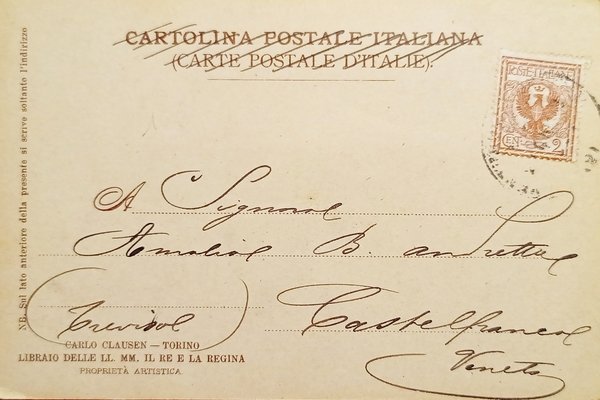 CARTOLINA POSTALE ITALIANA
(CARTE POSTALE D'ITALIE).
POSTE ITALIANE
CEN. 2
NB. Sul lato anteriore della presente si scrive soltanto l'indirizzo
A Signora
Amalia B. andretta
(Treviso) Castelfranco
Veneto
CARLO CLAUSEN — TORINO
LIBRAIO DELLE LL. MM. IL RE E LA REGINA
PROPRIETÀ ARTISTICA